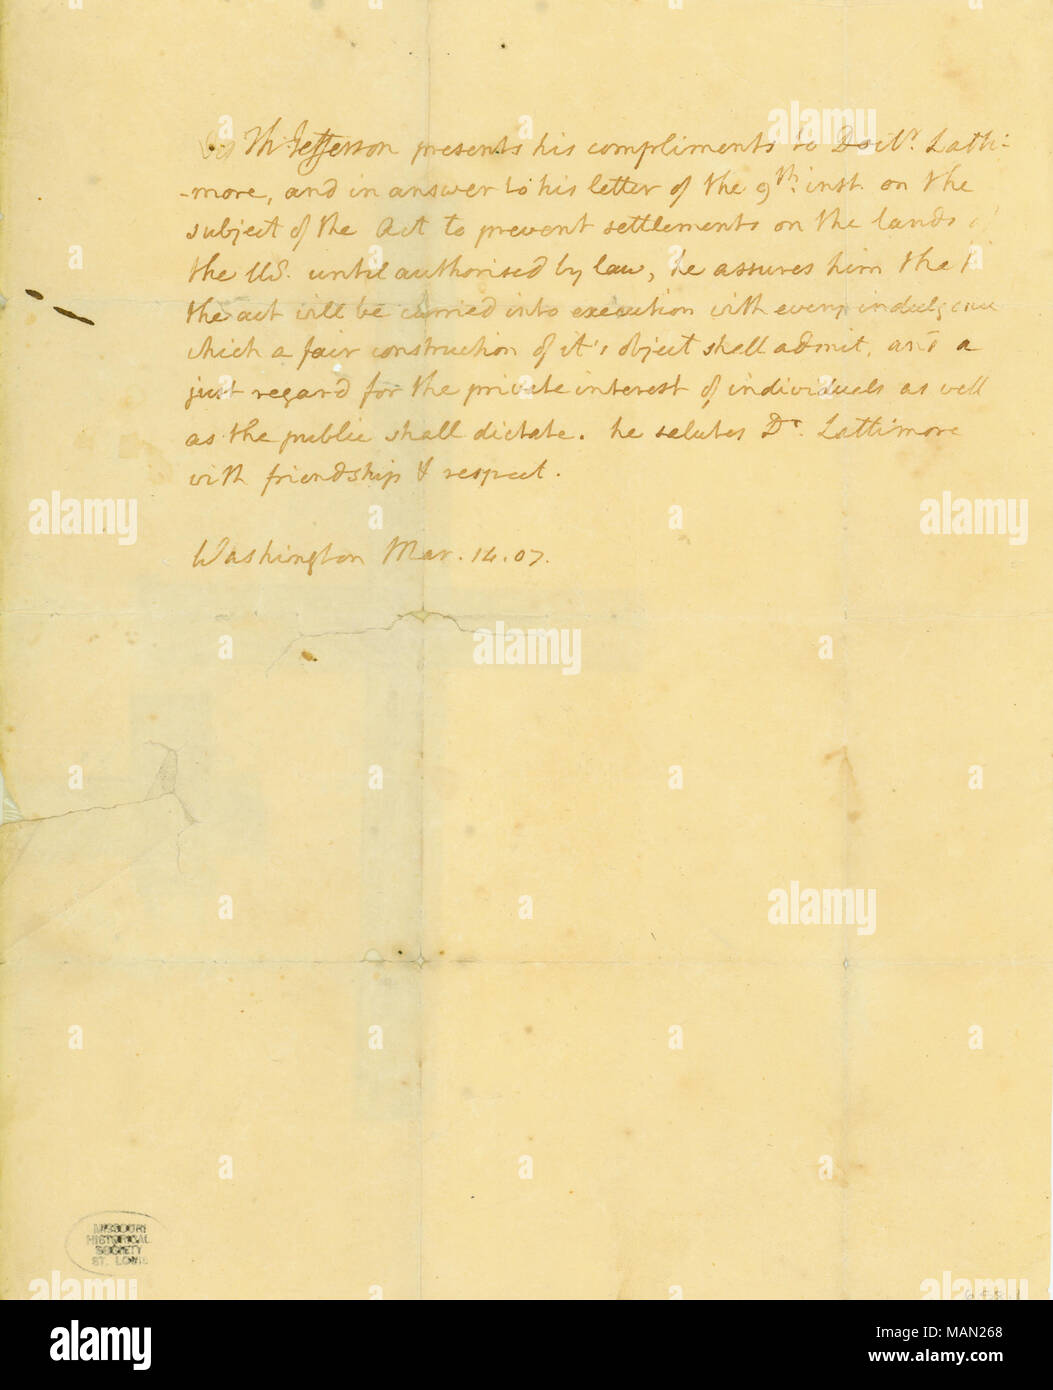 Th: Jefferson presents his compliments to Doctr. Latti-
-more, and in answer to his letter of the 9th. inst. on the
subject of the Act to prevent settlements on the lands
the US. until authorised by law, he assures him
the act will be carried into execution with every indulgence
which a fair construction of it's object shall admit, and a
just regard for the private interest of individuals as well
as the public shall dictate. he salutes Dr. Lattimore
with friendship & respect.
Washington Mar. 14. 07.
MISSOURI
HISTORICAL
SOCIETY
ST. LOUIS
alamy
Image ID: MAN268
www.alamy.com